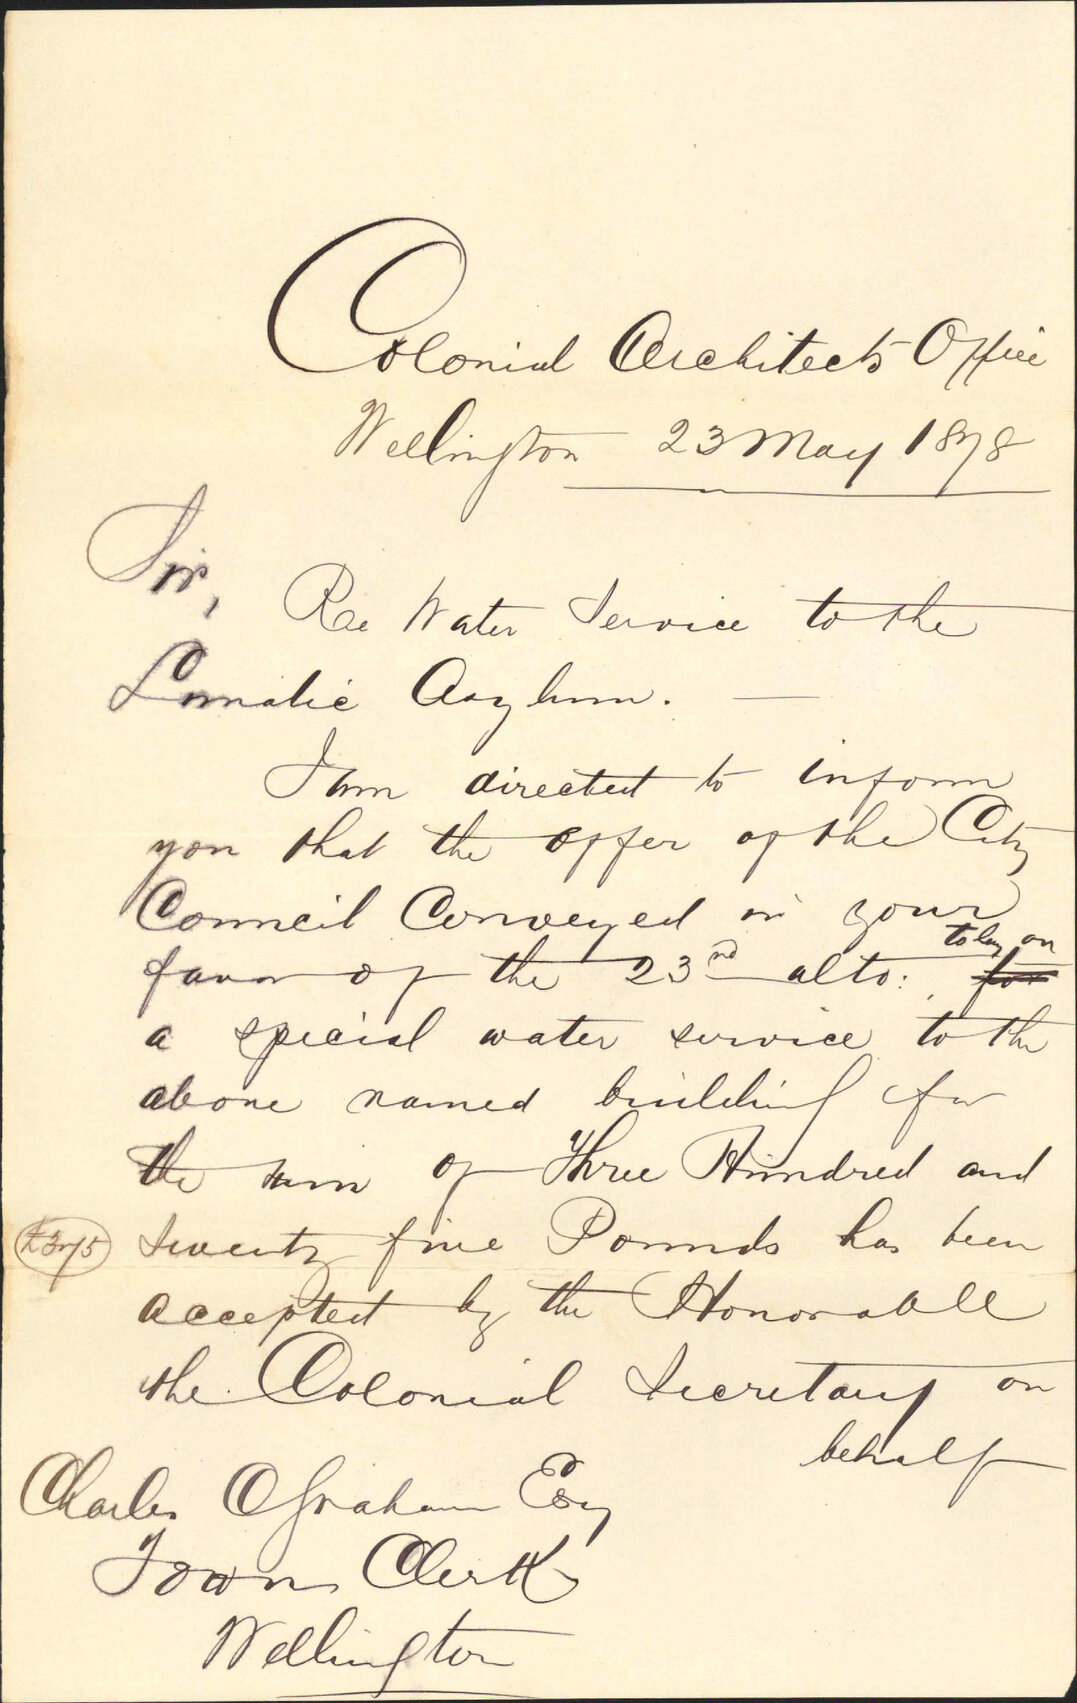 Colonial Architects Office
Wellington 23 May 1878
Sir,
Re Water Service to the
Lunatic Asylum. —
I am directed to inform
you that the offer of the City
Council Conveyed in your
to lay on
favor of the 23rd ulto: , for
a special water service to the
above named building for
the sum of Three Hundred and
£325
Twenty five Pounds has been
accepted by the Honorable
the Colonial Secretary on
behalf
Charles C Graham Esq
Town Clerk
Wellington